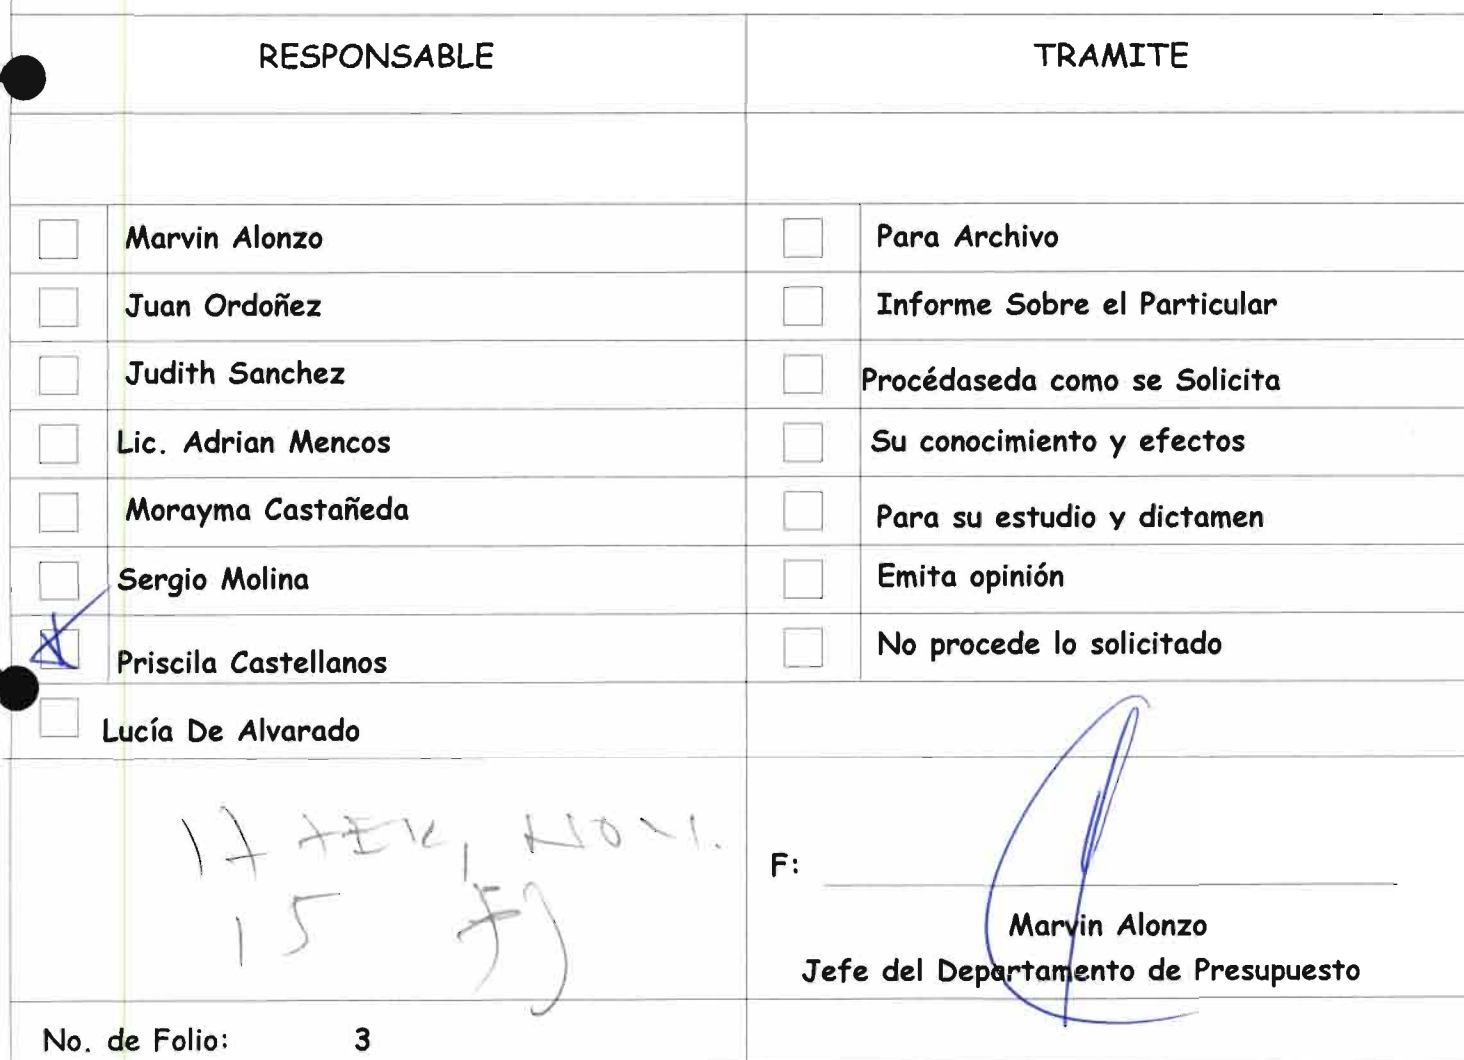 RESPONSABLE
TRAMITE
Marvin Alonzo
Para Archivo
Juan Ordoñez
Informe Sobre el Particular
Judith Sanchez
Procédaseda como se Solicita
Lic. Adrian Mencos
Su conocimiento y efectos
Morayma Castañeda
Para su estudio y dictamen
Sergio Molina
Emita opinión
Priscila Castellanos
No procede lo solicitado
Lucía De Alvarado
15
F:
Marvin Alonzo
Jefe del Departamento de Presupuesto
No. de Folio: 3